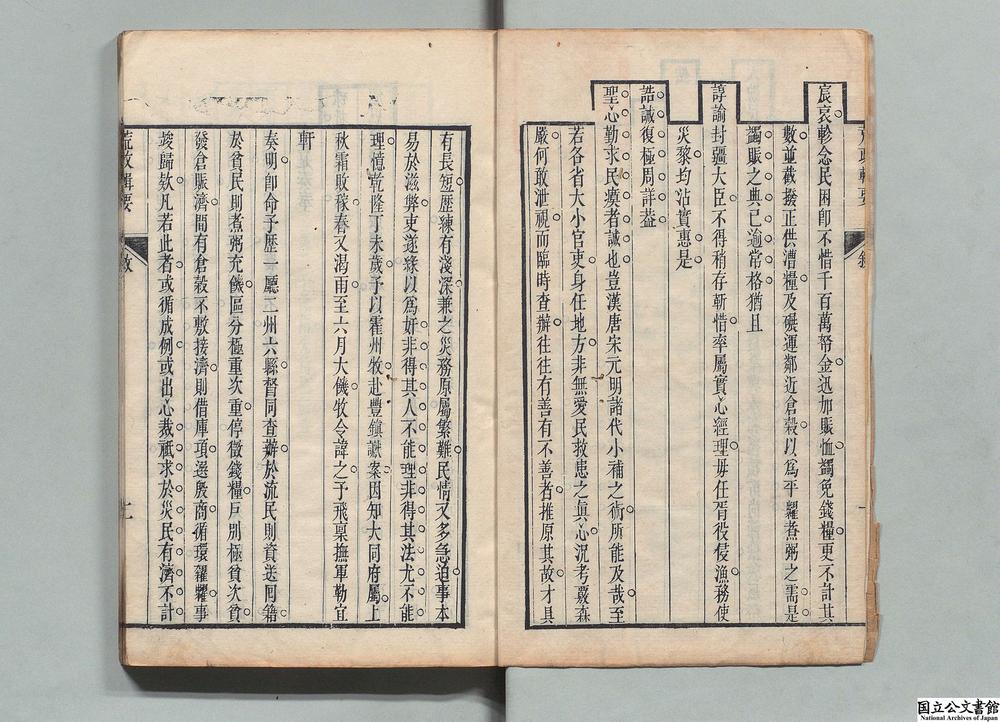 宸衷軫念民困卽不惜千百萬帑金迅加賑恤蠲免錢糧更不計其
數並截撥正供漕糧及碾運鄰近倉穀以爲平糶煮粥之需是
蠲賑之典已逾常格猶且
諄諭封疆大臣不得稍存靳惜率屬實心經理毋任胥役侵漁務使
災黎均沾實惠是
誥誡復極周詳葢
聖心勤求民瘼者誠也豈漢唐宋元明諸代小補之術所能及哉至
若各省大小官吏身任地方非無愛民救患之眞心況考覈森
嚴何敢泄視而臨時查辦往往有善有不善者推原其故才具
有長短歷練有淺深兼之災務原屬繁難民情又多急迫事本
易於滋弊吏遂緣以爲奸非得其人不能理非得其法尤不能
理憶乾隆丁未歲予以霍州牧赴豐鎭讞案因知大同府屬上
秋霜敗稼春又渴雨至六月大饑牧令諱之予飛稟撫軍勒宜
軒
奏明卽命予歷一廳二州六縣督同查辦於流民則資送回籍
於貧民則煮粥充饑區分極重次重停徵錢糧戶別極貧次貧
發倉賑濟間有倉穀不敷接濟則借庫項選殷商循環糴糶事
竣歸欸凡若此者或循成例或出心裁祗求於災民有濟不計
荒政輯要
敘
一
荒政輯要
敘
二
国立公文書館
National Archives of Japan